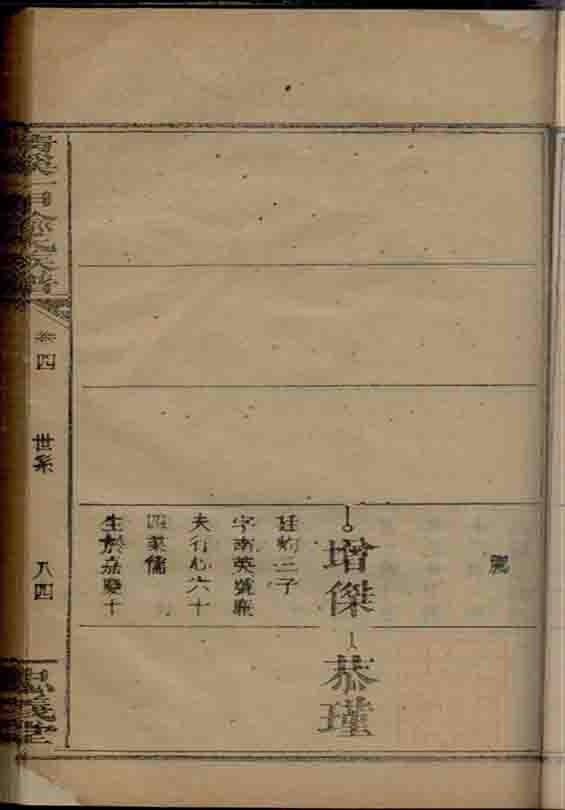 增傑
廷昫三子
字南英號聚
夫行心六十
四業儒
生於嘉慶十
恭瑾
卷四
世系
八四
忠義堂